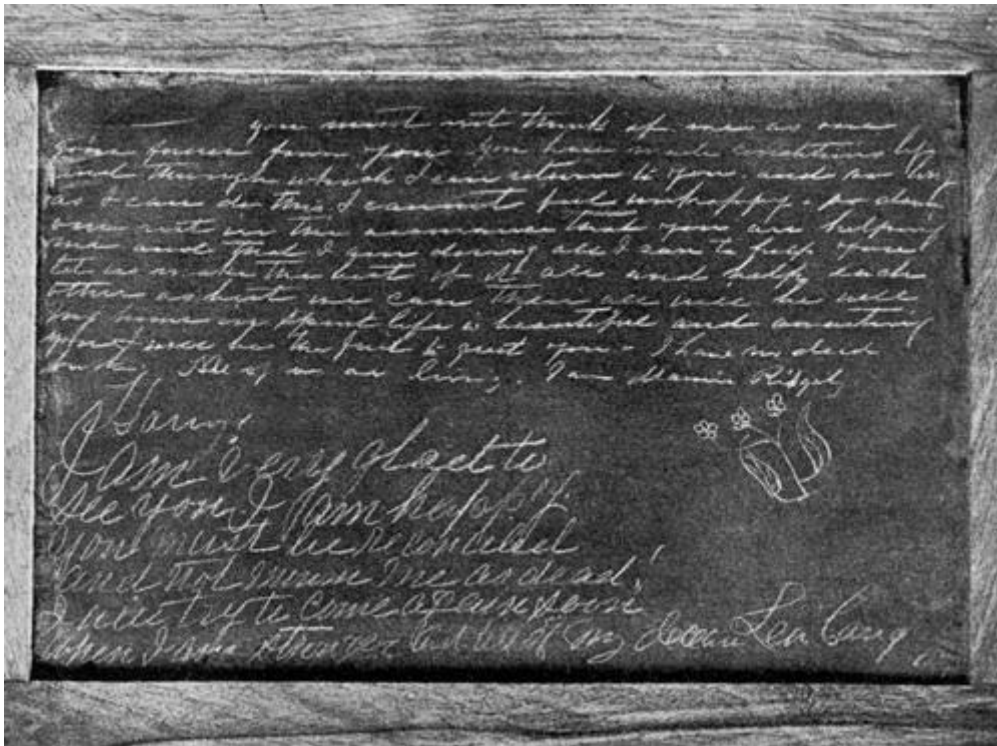 you must not think of me as one
gone forever from you You have made conditions by
and through which I can return to you and so long
as I can do this I cannot feel unhappy. so dont
rest in the assurance that you are helping
me and that I am doing all I can to help you
let us make the best of it all and help each
other as best we can Then all will be well
my home in spirit life is beautiful and awaiting
you I will be the first to greet you. I have no dead
All of us are living. I am Mamie Ridgely
I am very glad to
see you I am happy.
you must be reconciled
and not mourn me as dead!
I will try to come again soon
when I am stronger my dear